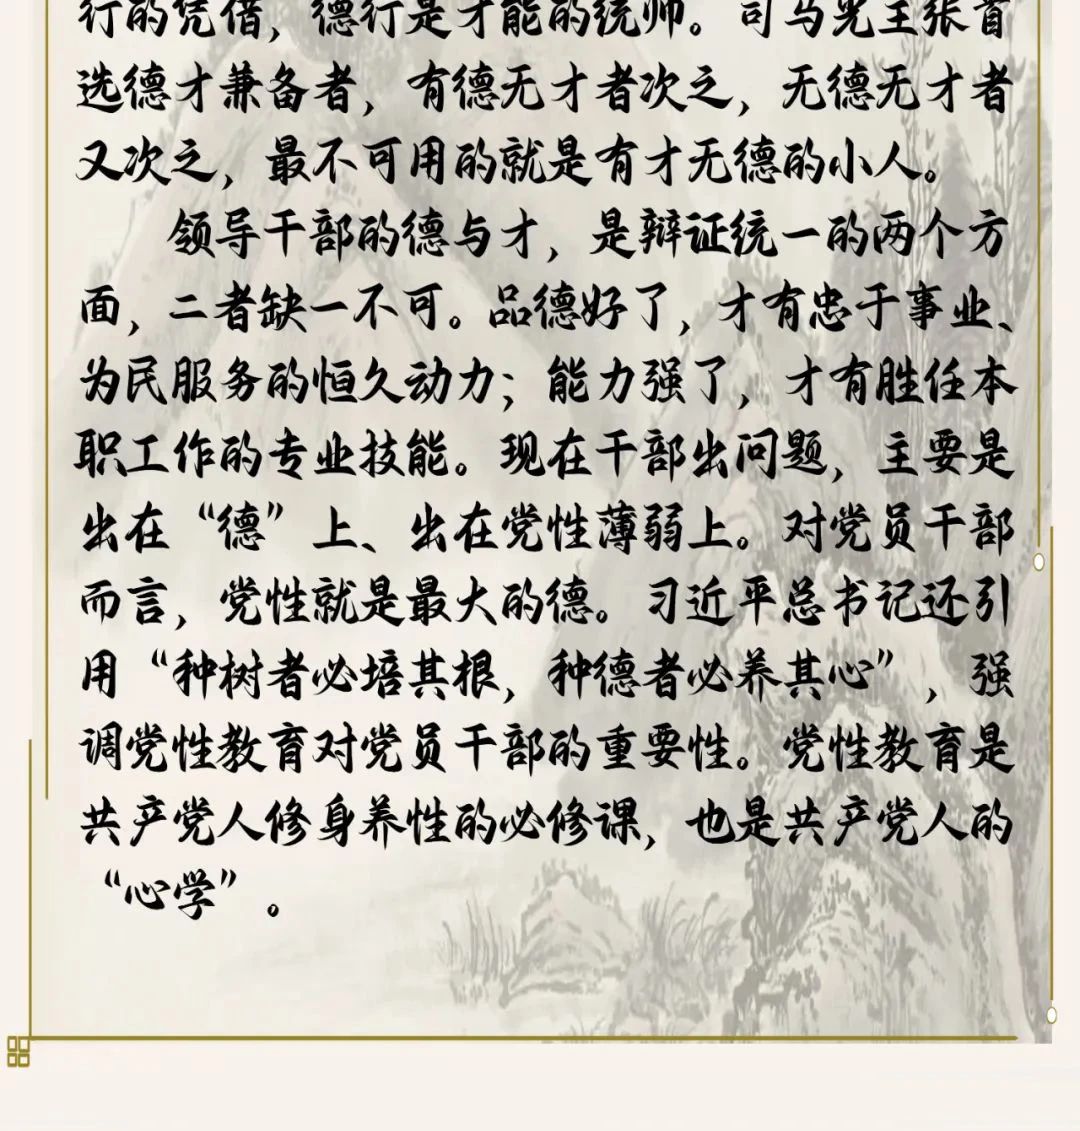 行的凭借，德行是才能的统帅。司马光主张首
选德才兼备者，有德无才者次之，无德无才者
又次之，最不可用的就是有才无德的小人。
领导干部的德与才，是辩证统一的两个方
面，二者缺一不可。品德好了，才有忠于事业、
为民服务的恒久动力；能力强了，才有胜任本
职工作的专业技能。现在干部出问题，主要是
出在“德”上、出在党性薄弱上。对党员干部
而言，党性就是最大的德。习近平总书记还引
用“种树者必培其根，种德者必养其心”，强
调党性教育对党员干部的重要性。党性教育是
共产党人修身养性的必修课，也是共产党人的
“心学”。